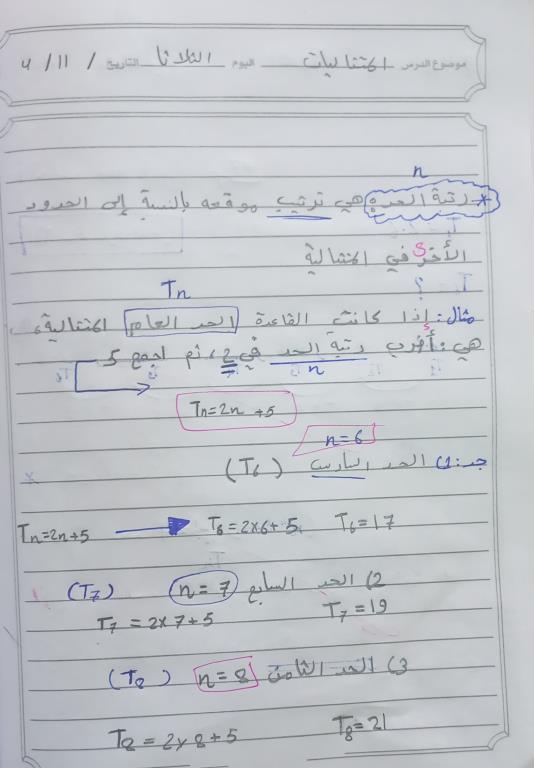 موضوع الدرس المتتاليات اليوم الثلاثا التاريخ / 11 / 4
n
* رتبة الحد: هي ترتيب موقعه بالنسبة إلى الحدود
الأخرى في المتتالية
Tn
مثال: إذا كانت القاعدة الحد العام لمتتالية،
هي: أضرب رتبة الحد في 2، ثم اجمع 5
n
Tn=2n+5
n=6
جد: 1) الحد السادس (T6)
Tn=2n+5 T6=2x6+5 T6=17
2) الحد السابع n=7 (T7)
T7=2x7+5 T7=19
3) الحد الثامن n=8 (T8)
T8=2x8+5 T8=21